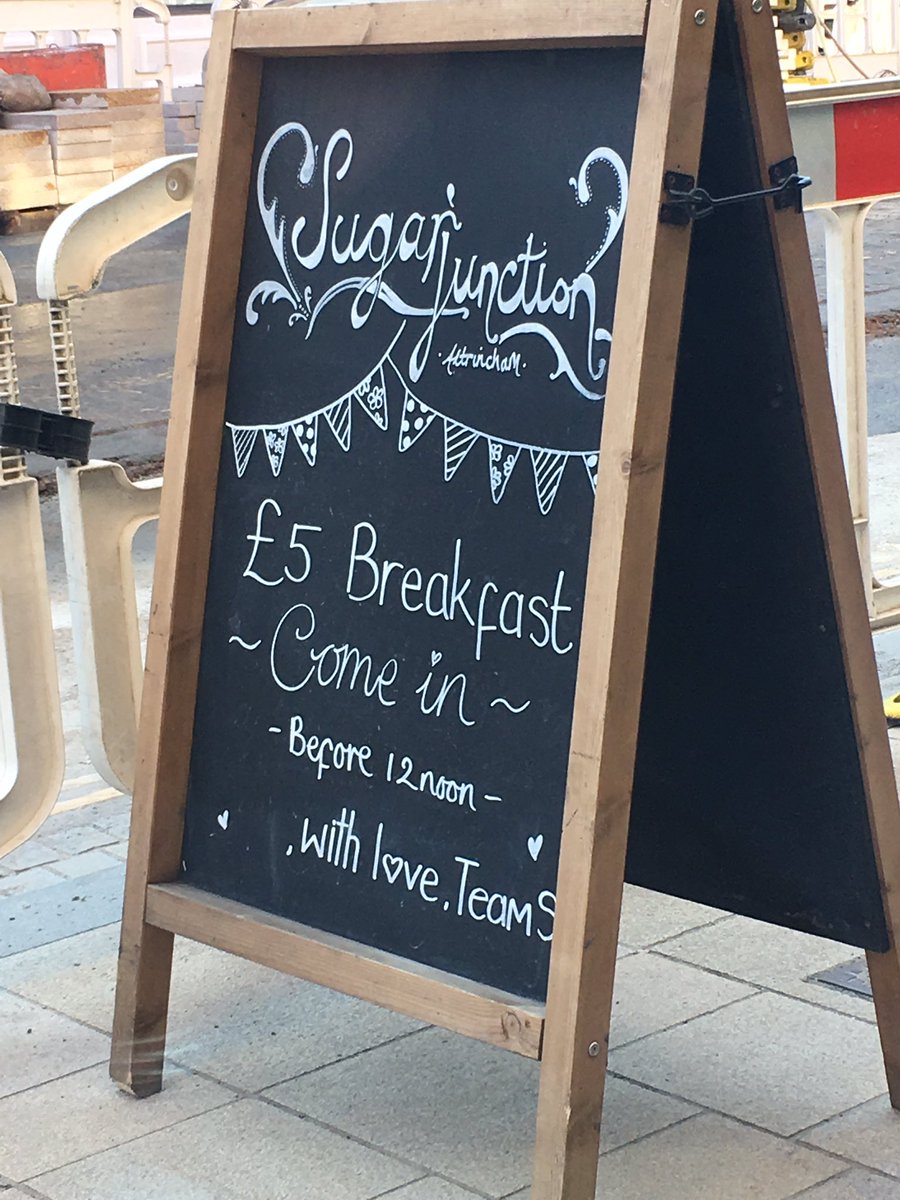 Sugar Junction
·Altrincham·
£5 Breakfast
~Come in~
-Before 12noon-
, with love, Team S